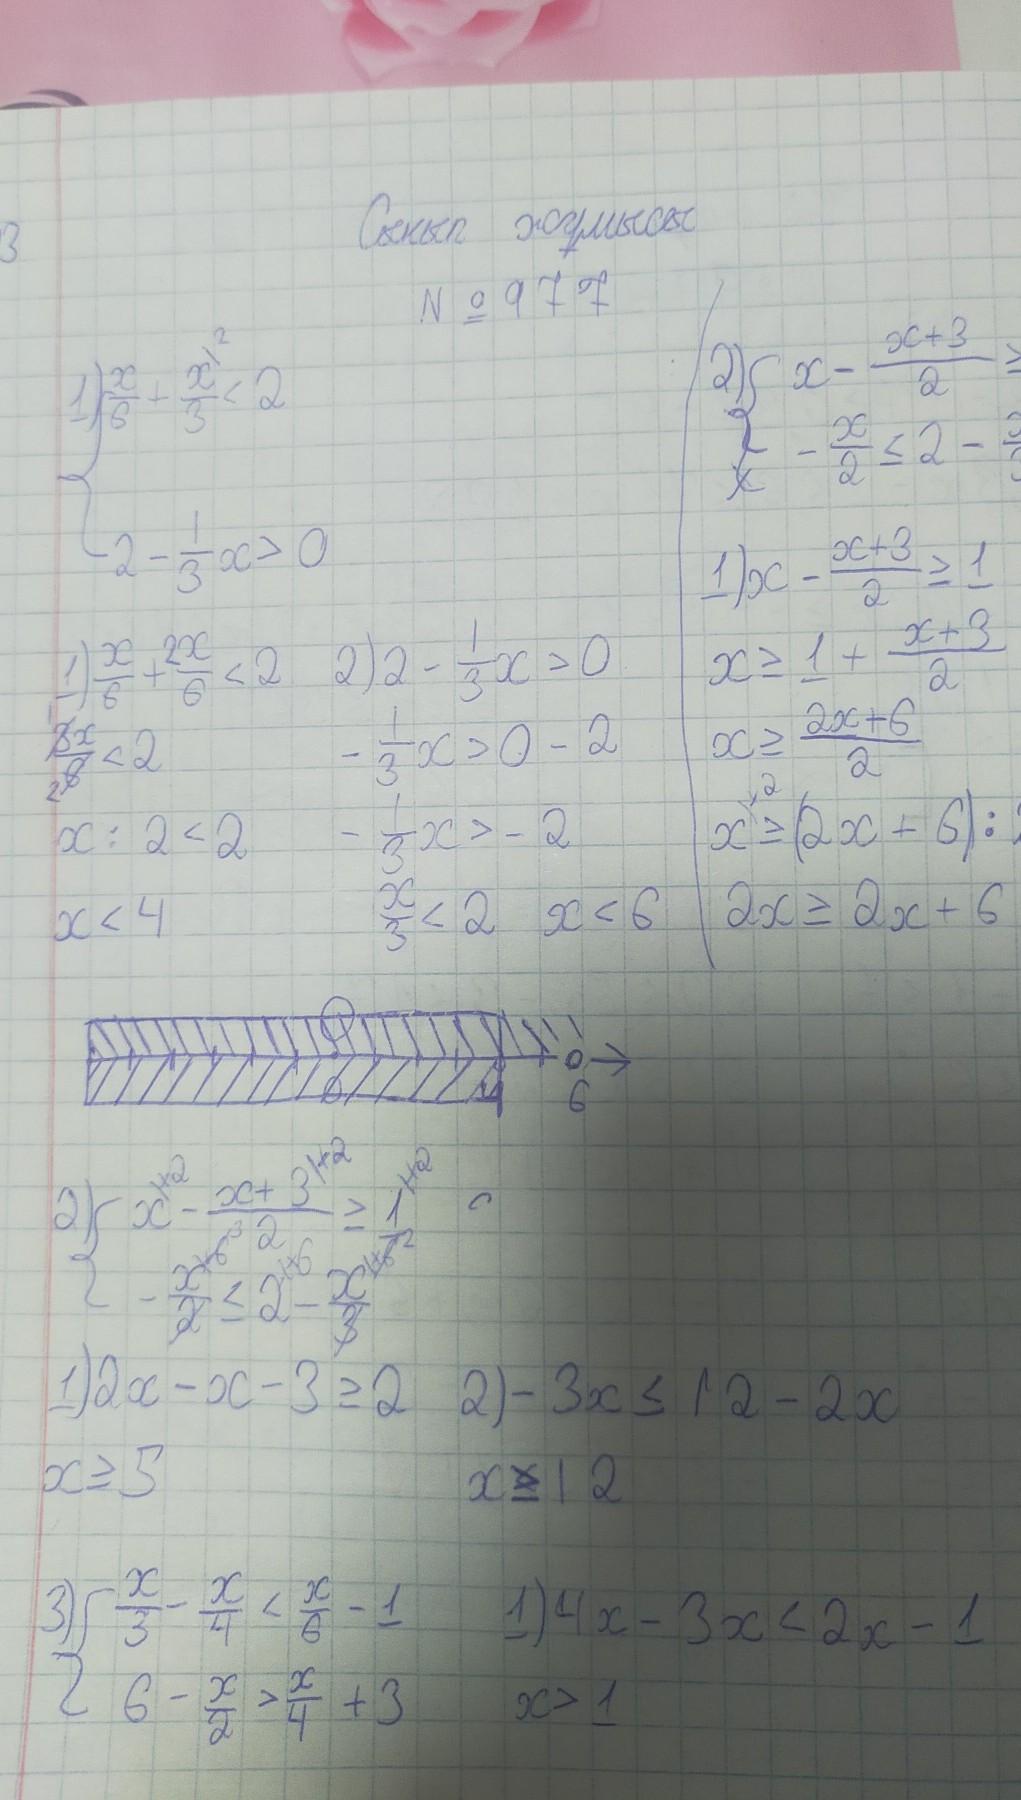 Сынып жұмысы
№ 977
1) { x/6 + x/3 \2 < 2
2 - 1/3 x > 0
1) x/6 + 2x/6 < 2
3x/6 < 2
x : 2 < 2
x < 4
2) 2 - 1/3 x > 0
- 1/3 x > 0 - 2
- 1/3 x > - 2
x/3 < 2 x < 6
2) { x - (x+3)/2 ≥
- x/2 ≤ 2 -
1) x - (x+3)/2 ≥ 1
x ≥ 1 + (x+3)/2
x ≥ (2x+6)/2
x ≥ (2x + 6) :
2x ≥ 2x + 6
6
2) { x - (x+3)/2 ≥ 1
- x/2 ≤ 2 - x/3
1) 2x - x - 3 ≥ 2
x ≥ 5
2) - 3x ≤ 12 - 2x
x 12
3) { x/3 - x/4 < x/6 - 1
6 - x/2 > x/4 + 3
1) 4x - 3x < 2x - 1
x > 1